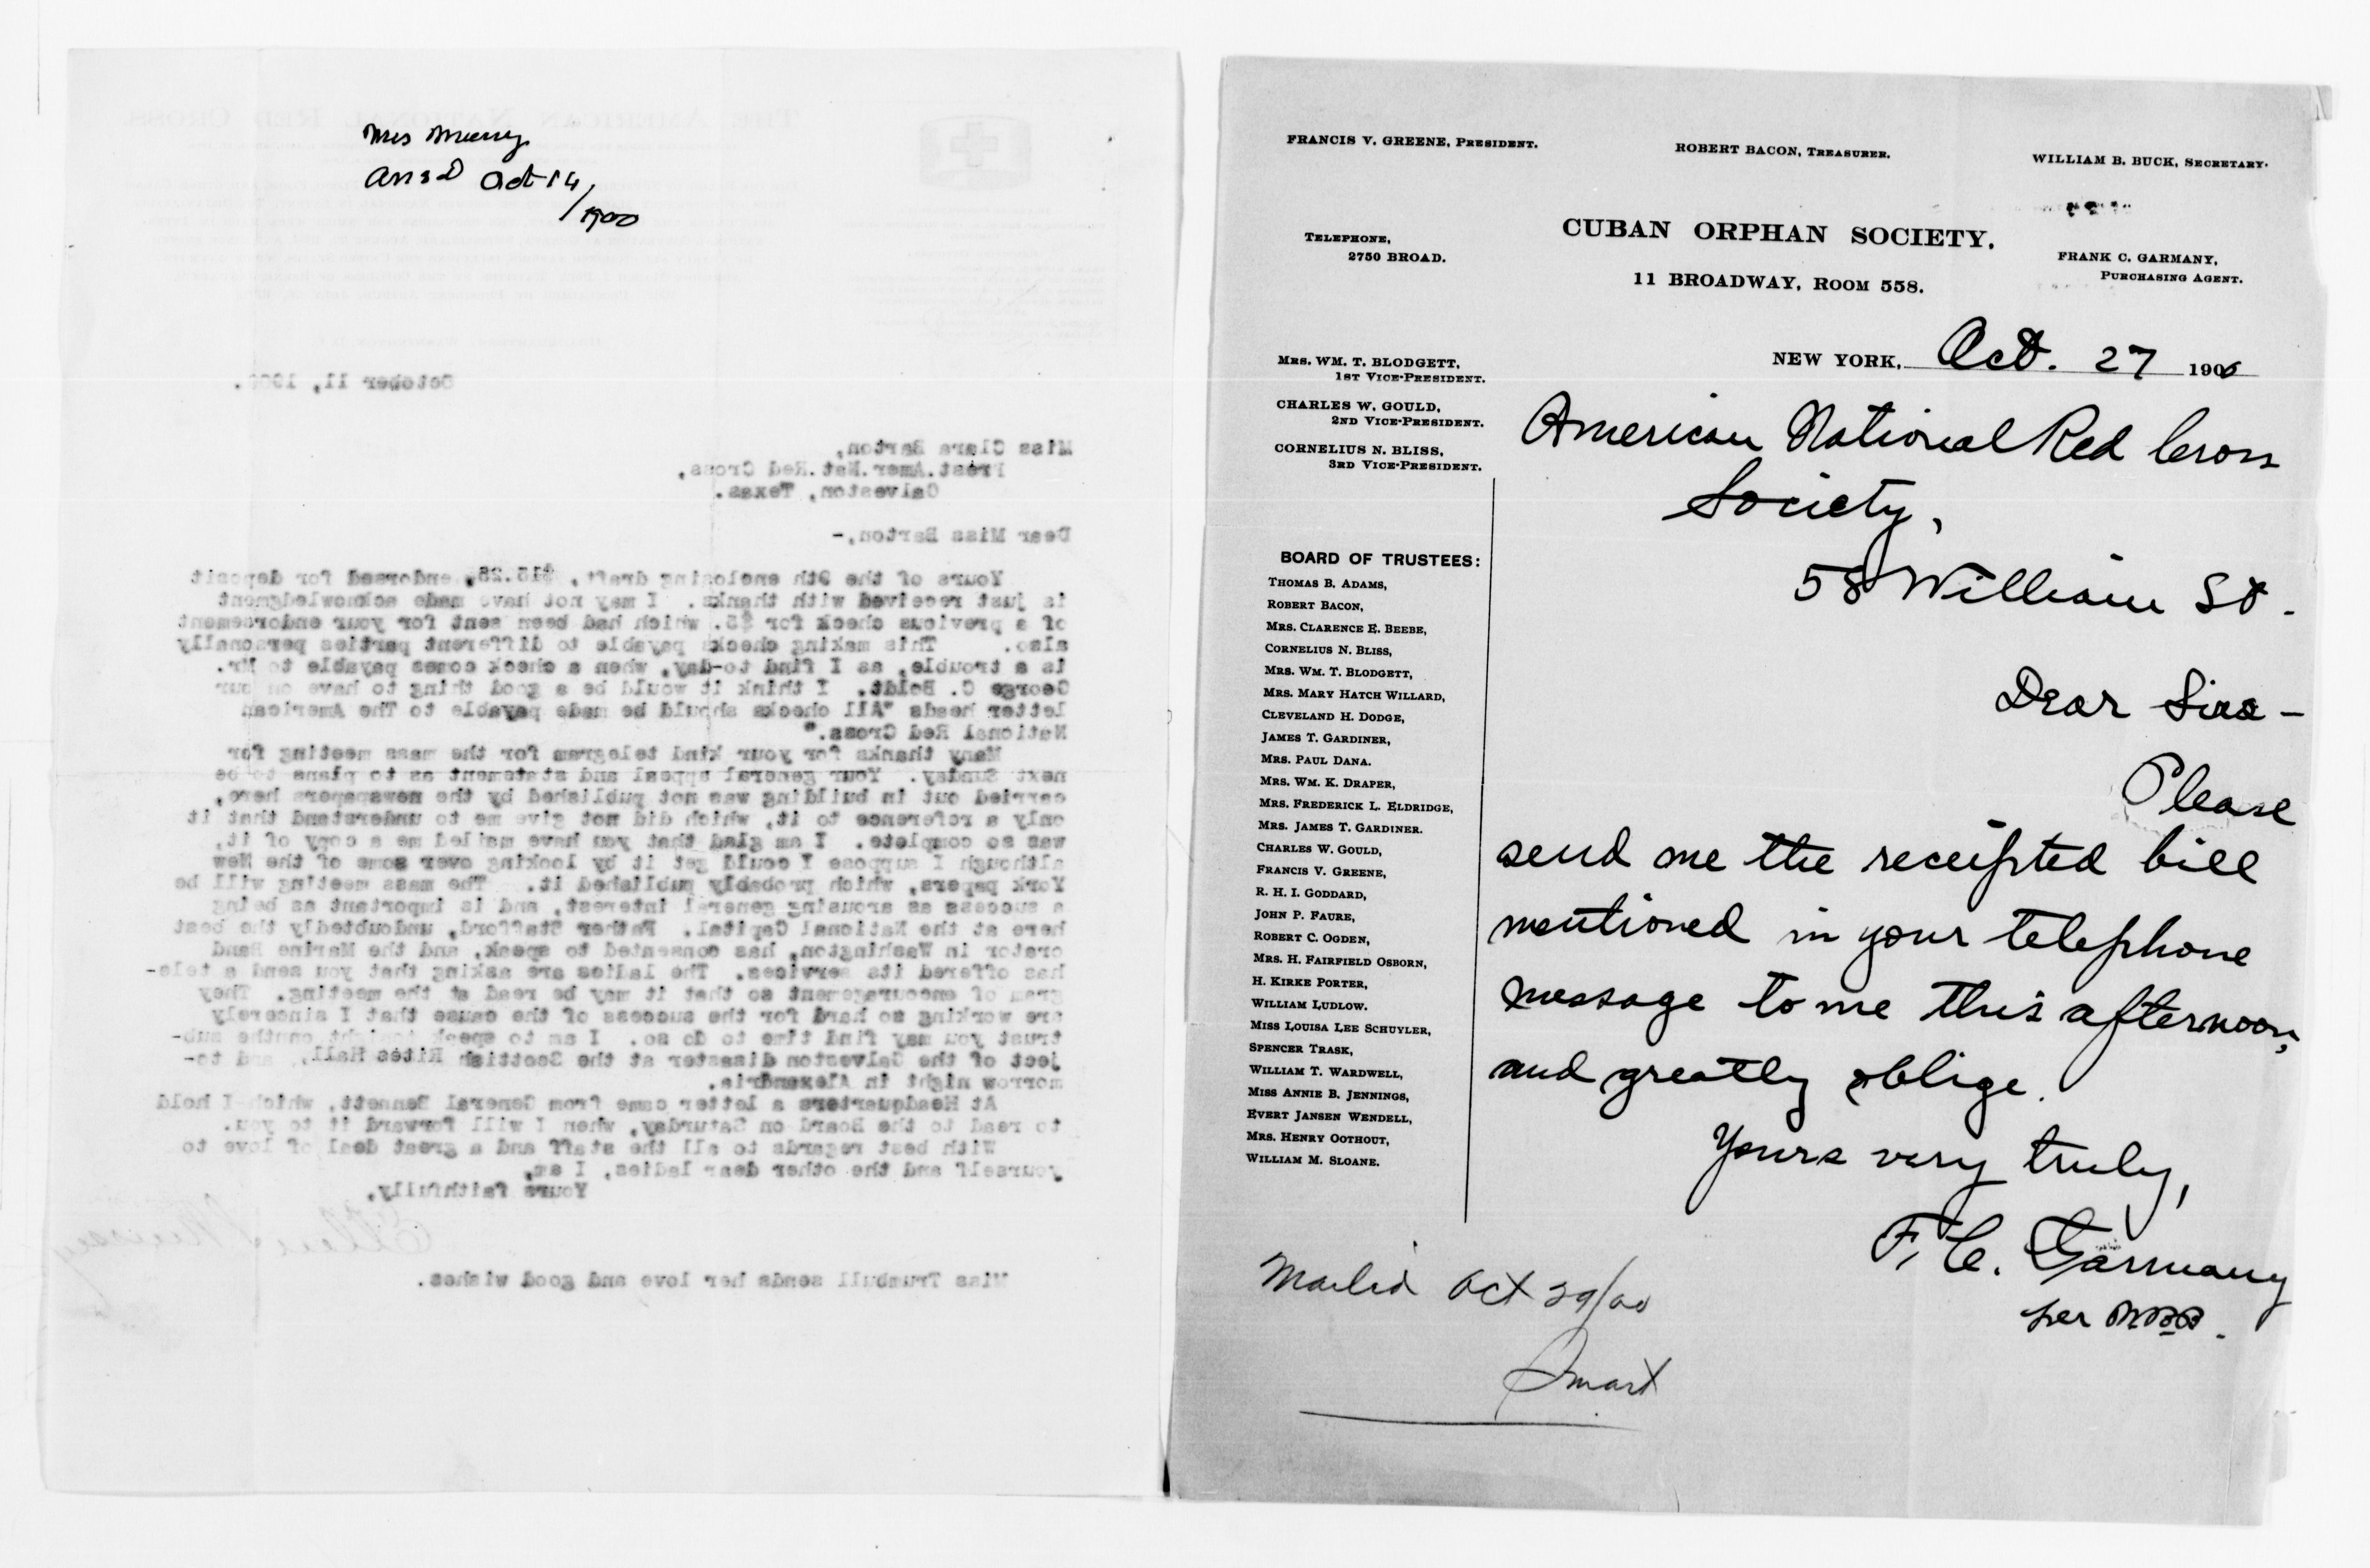 Mrs Mussey
Ansd Oct 14/
1900
THE AMERICAN NATIONAL RED CROSS.
October 11, 1900.
Miss Clara Barton,
Prest.Amer.Nat.Red Cross,
Galveston, Texas.
Dear Miss Barton,-
Yours of the 9th enclosing draft, $15.25, endorsed for deposit
is just received with thanks. I may not have made acknowledgment
of a previous check for $5. which had been sent for your endorsement
also. This making checks payable to different parties personally
is a trouble, as I find to-day, when a check comes payable to Mr.
George C. Boldt. I think it would be a good thing to have on our
letter heads "All checks should be made payable to The American
National Red Cross."
Many thanks for your kind telegram for the mass meeting for
next Sunday. Your general appeal and statement as to plans to be
carried out in building was not published by the newspapers here,
only a reference to it, which did not give me to understand that it
was so complete. I am glad that you have mailed me a copy of it,
although I suppose I could get it by looking over some of the New
York papers, which probably published it. The mass meeting will be
a success as arousing general interest, and is important as being
here at the National Capital. Father Stafford, undoubtedly the best
orator in Washington, has consented to speak, and the Marine Band
has offered its services. The ladies are asking that you send a tele-
gram of encouragement so that it may be read at the meeting. They
are working so hard for the success of the cause that I sincerely
trust you may find time to do so. I am to speak tonight onthe sub-
ject of the Galveston disaster at the Scottish Rites Hall, and to-
morrow night in Alexandria.
At Headquarters a letter came from General Bennett, which I hold
to read to the Board on Saturday, when I will forward it to you.
With best regards to all the staff and a great deal of love to
yourself and the other dear ladies, I am,
Yours faithfully,
Ellen S Mussey
Miss Trumbull sends her love and good wishes.
FRANCIS V. GREENE, PRESIDENT.
ROBERT BACON, TREASURER.
WILLIAM B. BUCK, SECRETARY.
CUBAN ORPHAN SOCIETY.
TELEPHONE,
2750 BROAD.
FRANK C. GARMANY,
PURCHASING AGENT.
11 BROADWAY, ROOM 558.
NEW YORK, Oct. 27 1900
MRS. WM. T. BLODGETT,
1ST VICE-PRESIDENT.
CHARLES W. GOULD,
2ND VICE-PRESIDENT.
CORNELIUS N. BLISS,
3RD VICE-PRESIDENT.
BOARD OF TRUSTEES:
THOMAS B. ADAMS,
ROBERT BACON,
MRS. CLARENCE E. BEEBE,
CORNELIUS N. BLISS,
MRS. WM. T. BLODGETT,
MRS. MARY HATCH WILLARD,
CLEVELAND H. DODGE,
JAMES T. GARDINER,
MRS. PAUL DANA.
MRS. WM. K. DRAPER,
MRS. FREDERICK L. ELDRIDGE,
MRS. JAMES T. GARDINER.
CHARLES W. GOULD,
FRANCIS V. GREENE,
R. H. I. GODDARD,
JOHN P. FAURE,
ROBERT C. OGDEN,
MRS. H. FAIRFIELD OSBORN,
H. KIRKE PORTER,
WILLIAM LUDLOW.
MISS LOUISA LEE SCHUYLER,
SPENCER TRASK,
WILLIAM T. WARDWELL,
MISS ANNIE B. JENNINGS,
EVERT JANSEN WENDELL,
MRS. HENRY OOTHOUT,
WILLIAM M. SLOANE.
American National Red Cross
Society,
58 William St.
Dear Sirs -
Please
send me the receipted bill
mentioned in your telephone
message to me this afternoon,
and greatly oblige.
Yours very truly,
F. C. Garmany
per MBB.
Mailed Oct 29/00
Smart